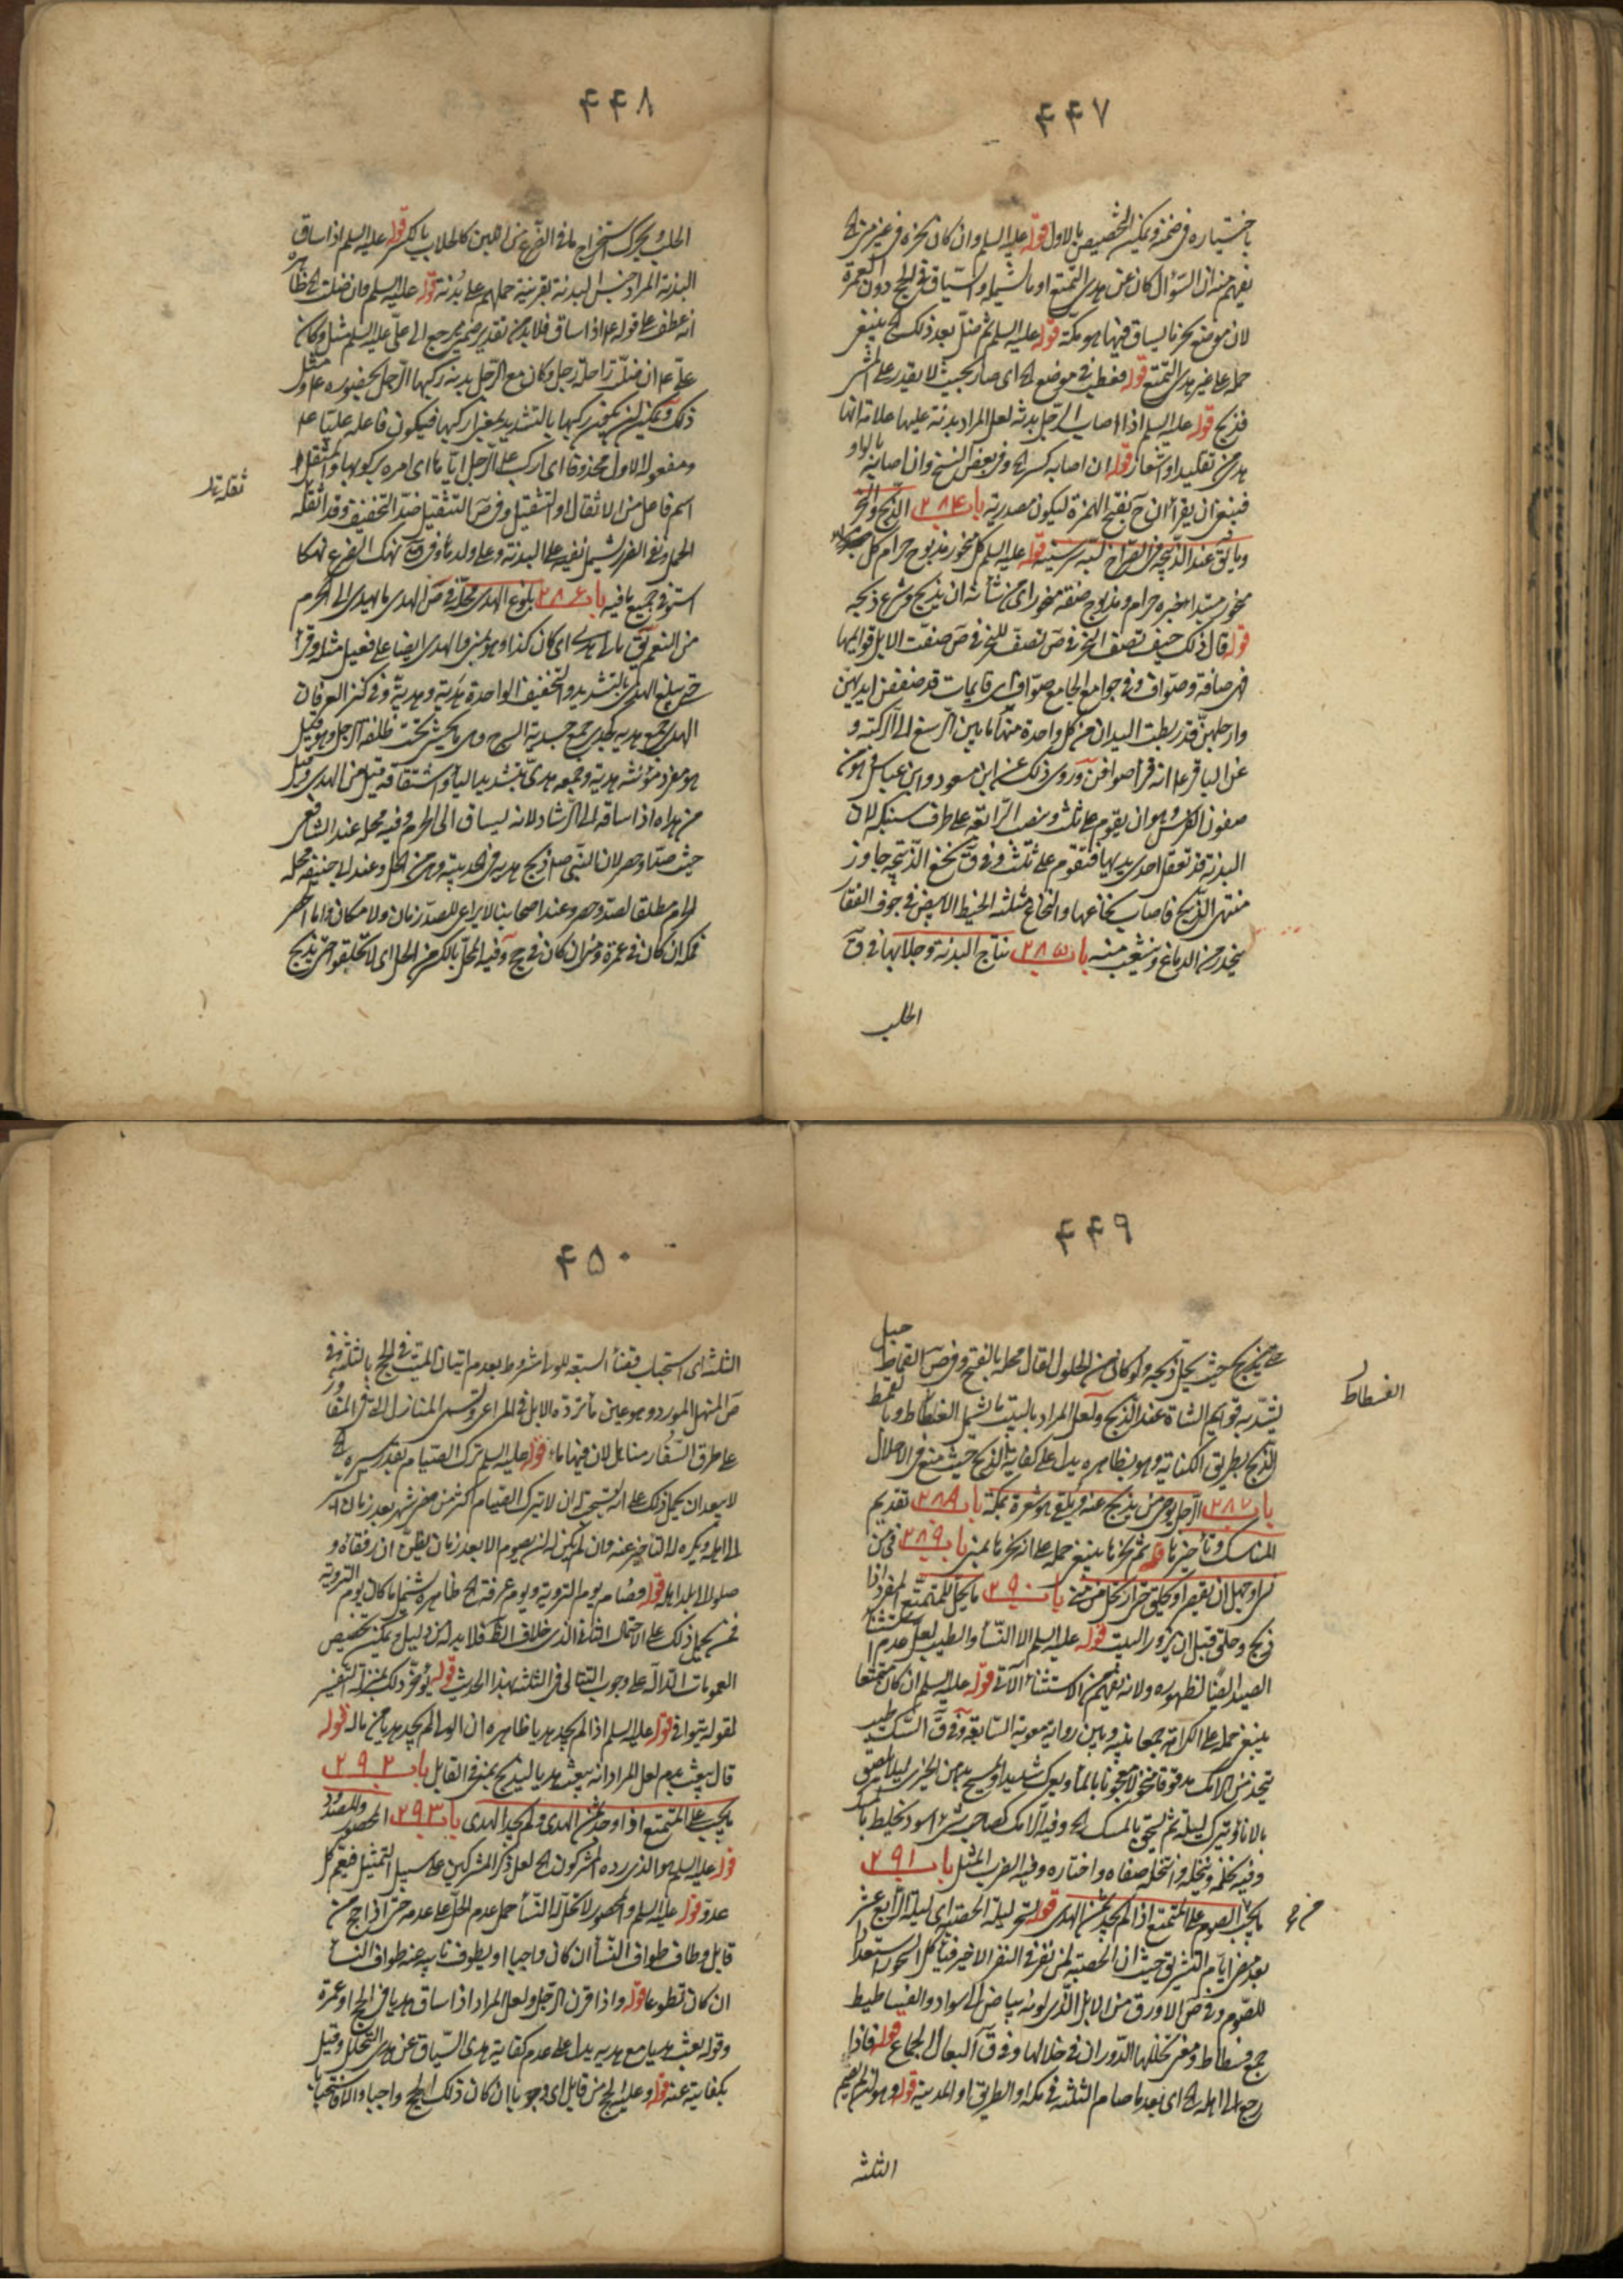 ۴۴۷
باختياره فى ضمنه ويمكن التخصيص بالاول قوله عليه السلم وان كان نحره فى غير منى الخ
يفهم منه ان السؤال كان عن هدى التمتع او ما يشمله والسياق فى الحج دون العمرة
لان موضع نحر ما يساق فيها هو مكة قوله عليه السلم ثم ضل بعد ذلك الخ ينبغى
حمله على غير هدى التمتع قوله فعطب فى موضع الخ اى صار بحيث لا يقدر على المشى
فذبح قوله عليه السلم اذا اصاب الرجل بدنة لعل المراد بدنة عليها علامة انها
هدى من تقليد او اشعار قوله ان اصابه كسر الخ وفى بعض النسخ وان اصابه بالواو
فينبغى ان يقرأ ان ح بفتح الهمزة ليكون مصدرية باب ۲۸۴ الذبح والنحر
وما يق عند الذبيحة قوله عليه السلم كل منحور مذبوح حرام كل
منحور مبتدا خبره حرام ومذبوح صفة منحور اى من شأنه ان ينحر وشرع ذبحه
قوله قال ذلك حين تصف للنحر فى ص صفت الابل قوايمها
فهى صافة وصواف وفى جوامع الجامع صواف اى قايمات قد صففن ايديهن
وارجلهن قد ربطت اليدان من كل واحدة منها ما بين الرسغ الى الركبة و
عن الباقر ع انه قرأ صوافن وروى ذلك عن ابن مسعود وابن عباس وهو من
صفون الفرس وهو ان يقوم على ثلث وينصب الرابعة على طرف سنبكه لان
البدنة قد تعقل احدى يديها فتقوم على ثلث وفى ق نخع الذبيحة جاوز
منتهى الذبح فاصاب نخاعها والنخاع مثلثة الخيط الابيض فى جوف الفقار
ينحدر من الدماغ وينشعب منه باب ۲۸۵ نتاج البدنة وحلابها فى ق
الحلب
۴۴۸
الحلب ويحرك استخراج ما فى الضرع من اللبن كالحلاب بالكسر قوله عليه السلم اذا ساق
البدنة المراد جنس البدنة بقرينة حملهم على بدنة قوله عليه السلم وان ضلت الخ ظاهره
انه عطف على قوله ع اذا ساق فلا بد من تقدير ضمير يرجع الى على عليه السلم مثل وكان
على ع ان ضلت راحلة رجل وكان مع الرجل بدنة ركبها الرجل بحضوره ع او مثل
ذلك ويمكن ان يكون ركبها بالتشديد بمعنى اركبها فيكون فاعله عليا ع
ومفعوله الاول محذوفا اى اركب على الرجل اياها اى امره بركوبها والمثقل
اسم فاعل من الاثقال او التثقيل وفى ص التثقيل ضد التخفيف وقد اثقله
ثقله
الحمل ونفى الضرر ليشمل نفيه على البدنة وعلى ولدها وفى ص نهك الضرع نهكا
استوفى جميع ما فيه باب ۲۸۶ بلوغ الهدى محله فى ص الهدى ما يهدى الى الحرم
من النعم يق مالى هدى ان كان كذا وهو يمين والهدى ايضا على فعيل مثله وقرأ
حتى يبلغ الهدى بالتشديد والتخفيف الواحدة هدية وهدية وفى كنز العرفان
الهدى جمع هدية كجدى جمع جدية السرج وهى ما يحشى تحت ظلفة الرحل وقيل
هو مفرد مؤنثه هدية وجمعه هدى بتشديد الياء واشتقاقه قيل من الهدى وقيل
من هداه اذا ساقه الى الرشاد لانه يساق الى الحرم وفيه محله عند الشافعى
حيث صد او حصر لان النبى ص ذبح هديه فى الحديبية وهى من الحل وعند ابى حنيفة محله
الحرام مطلقا لصد وحصر وعند اصحابنا لا يراعى للصد زمان ولا مكان واما الحصر
فمكة ان كان فى عمرة ومنى ان كان فى حج وفيه المحل بالكسر من الحل اى لا تحلقوا حتى يذبح
۴۴۹
حيث يحل ذبحه ولو كان من الحلول لقال محله بالفتح وفى ص القماط حبل
يشد به قوايم الشاة عند الذبح ولعل المراد بالبيت ما يشمل الفسطاط
الفسطاط
الذبح بطريق الكناية وهو بظاهره يدل على كفاية الذبح حيث منع فى الاحلال
باب ۲۸۷ الرجل يوصى من يذبح عنه ويلقى هو شعره بمكة باب ۲۸۸ تقديم
المناسك وتأخيرها قوله ثم نحرها ينبغى حمله على انه نحرها بمنى باب ۲۸۹ فى من
نسى او جهل ان يقصر او يحلق حتى ارتحل من منى باب ۲۹۰ ما يحل للمتمتع والمفرد اذا
ذبح وحلق قبل ان يزور البيت قوله عليه السلم الا النساء والطيب لعل عدم استثناء
الصيد ايضا لظهوره ولانه يفهم من الاستثناء الآتى قوله عليه السلم ان كان متمتعا
ينبغى حمله على الكراهة جمعا بينه وبين رواية معوية السابقة وفى ق السك طيب
يتخذ من الرامك مدقوقا منخولا معجونا بالماء ويعرك شديدا ويمسح بدهن الخيرى لئلا يلصق
بالاناء ويترك ليلة ثم يسحق المسك الخ وفيه الرامك كصاحب شئ اسود يخلط بالمسك
وفيه نخله وتنخله وانتخله صفاه واختاره وفيه الضرب المثل باب ۲۹۱
ما يجب من الصوم على المتمتع اذا لم يجد ثمن الهدى قوله تسحر ليلة الحصبة اى ليلة الرابع عشر
بعد مضى ايام التشريق حيث ان الحصبة لمن نفر فى النفر الاخير فيأكل السحور استعدادا
للصوم وفى ص الاورق من الابل الذى لونه بياض الى سواد والفساطيط
جمع فسطاط ومعنى تخللها الدوران فى خلالها وفى ق البعال الجماع قوله فاذا
رجع الى اهله الخ اى بعد ما صام الثلثة فى مكة او الطريق او المدينة قوله وهو لم يصم
الثلثة
۴۵۰
الثلثة اى استحباب قضاء السبعة للولى مشروط بعدم اتيان الميت فى الحج بالثلثة وفى
ص المنهل المورد وهو عين ماء ترده الابل فى المراعى وتسمى المنازل التى فى المفاوز
على طرق السفار مناهل لان فيها ماء قوله عليه السلم ترك الصيام بقدر مسيره الخ
لا يبعد ان يحمل ذلك على انه يستحب له ان لا يترك الصيام اكثر من مضى شهر بعد زمان
الى اهله ويكره له التأخير عنه وان لم يكن له ان يصوم الا بعد زمان يظن ان رفقاءه و
صلوا الى بلد اهله قوله وصام يوم التروية ويوم عرفة الخ ظاهره يشمل ما كان يوم التروية
فمن يحمل ذلك على الاحتمال الذى خلاف الظ فلا بد له من دليل ويمكن تخصيص
العمومات الدالة على وجوب التتالى فى الثلثة بهذا الحديث قوله يؤخر ذلك بمنزلة التفسير
لقوله يتوانى قوله عليه السلم اذا لم يجد هديا ظاهره ان الولى لم يجد هديا من ماله قوله
قال يبعث بدم لعل المراد انه يبعث هديا ليذبح بمنى فى القابل باب ۲۹۲
ما يجب على المتمتع اذا وجد ثمن الهدى ولم يجد الهدى باب ۲۹۳ المحصور والمصدود
قوله عليه السلم هو الذى رده المشركون الخ لعل ذكر المشركين على سبيل التمثيل فيعم كل
عدو قوله عليه السلم والمحصور لا تحل له النساء حمل عدم الحل على عدمه حتى اذا حج من
قابل وطاف طواف النساء ان كان واجبا او يطوف نايبه عنه طواف النساء
ان كان تطوعا قوله واذا قرن الرجل ولعل المراد اذا ساق هديا فى الحج او عمرة
وقوله بعث هديا مع هديه يدل على عدم كفاية هدى السياق عن هدى التحلل وقيل
بكفايته عنه قوله وعليه الحج من قابل اى وجوبا ان كان ذلك الحج واجبا والا فاستحبابا